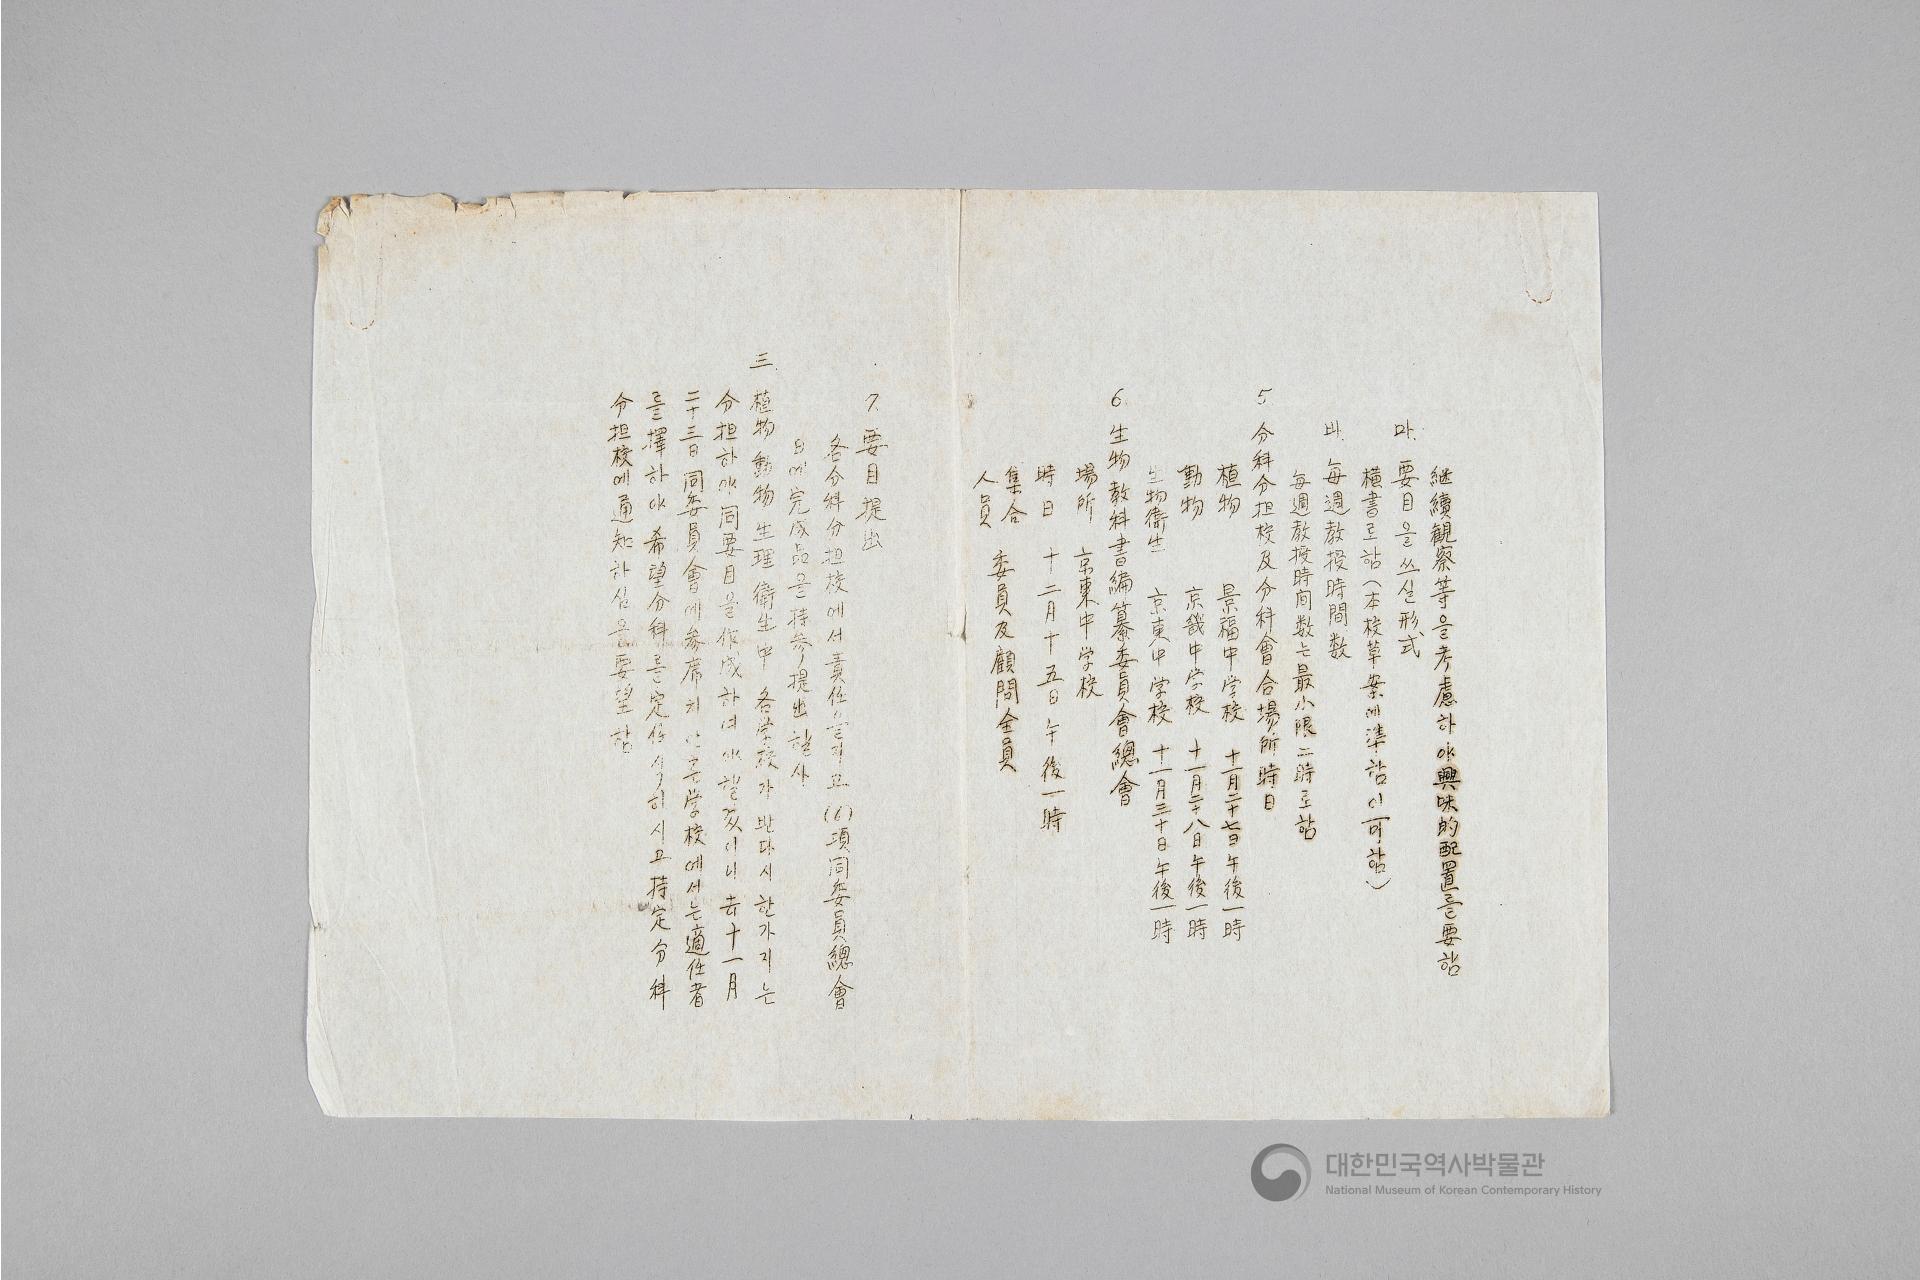 継續観察等을考慮하야興味的配置를要함
마. 要目을쓰실形式
橫書로함(本校草案에準함이可함)
바. 每週教授時間数
每週教授時间数는最小限二時로함
5 分科分担校及分科會合場所時日
植物 景福中学校 十一月二十七日午後一時
動物 京畿中学校 十一月二十八日午後一時
生物衛生 京東中学校 十一月三十日午後一時
6. 生物教科書編纂委員會總會
場所 京東中学校
時日 十二月十五日午後一時
集合人員 委員及顧問全員
7. 要目提出
各分科分担校에서責任을지고(6)項同委員總會
日에完成品을持參提出할사
三. 植物動物生理衛生中 各学校가반다시한가지는
分担하야同要目을作成하여야할것이니去十一月
二十三日同委員會에參席치안은学校에서는適任者
를擇하야希望分科를定任 히시고持定分科
分担校에通知하심을要望함
대한민국역사박물관
National Museum of Korean Contemporary History